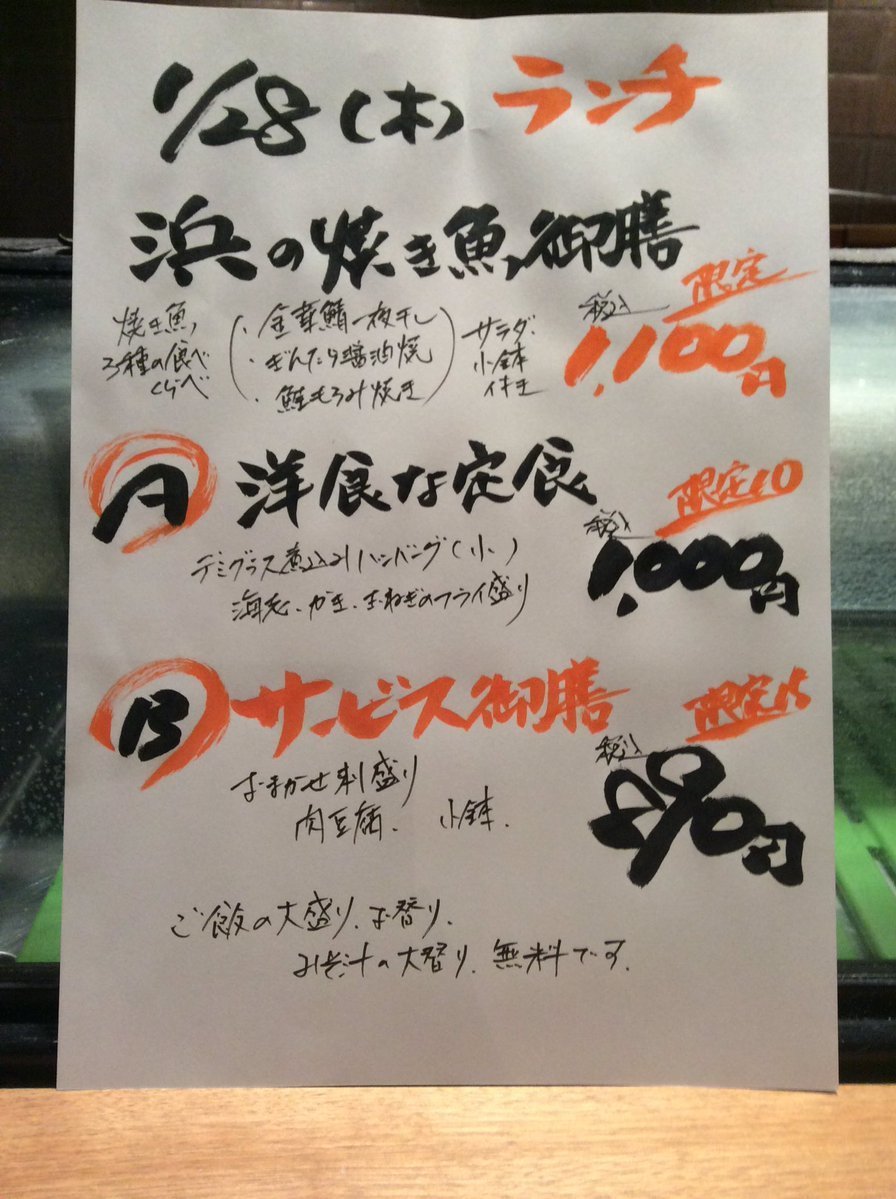 1/28(木)ランチ
浜の焼き魚御膳
限定
税込
1,100円
焼き魚
3種の食べ
くらべ
・金華鯖一夜干し
・ぎんだら醤油焼
・鮭もろみ焼き
サラダ、
小鉢
付き
A 洋食な定食
限定10
税込
1,000円
デミグラス煮込みハンバーグ(小)
海老、かき、玉ねぎのフライ盛り
B サービス御膳
限定15
税込
円
おまかせ刺盛り
肉豆腐、小鉢、
ご飯の大盛り、お替り、
みそ汁のお替り、無料です。